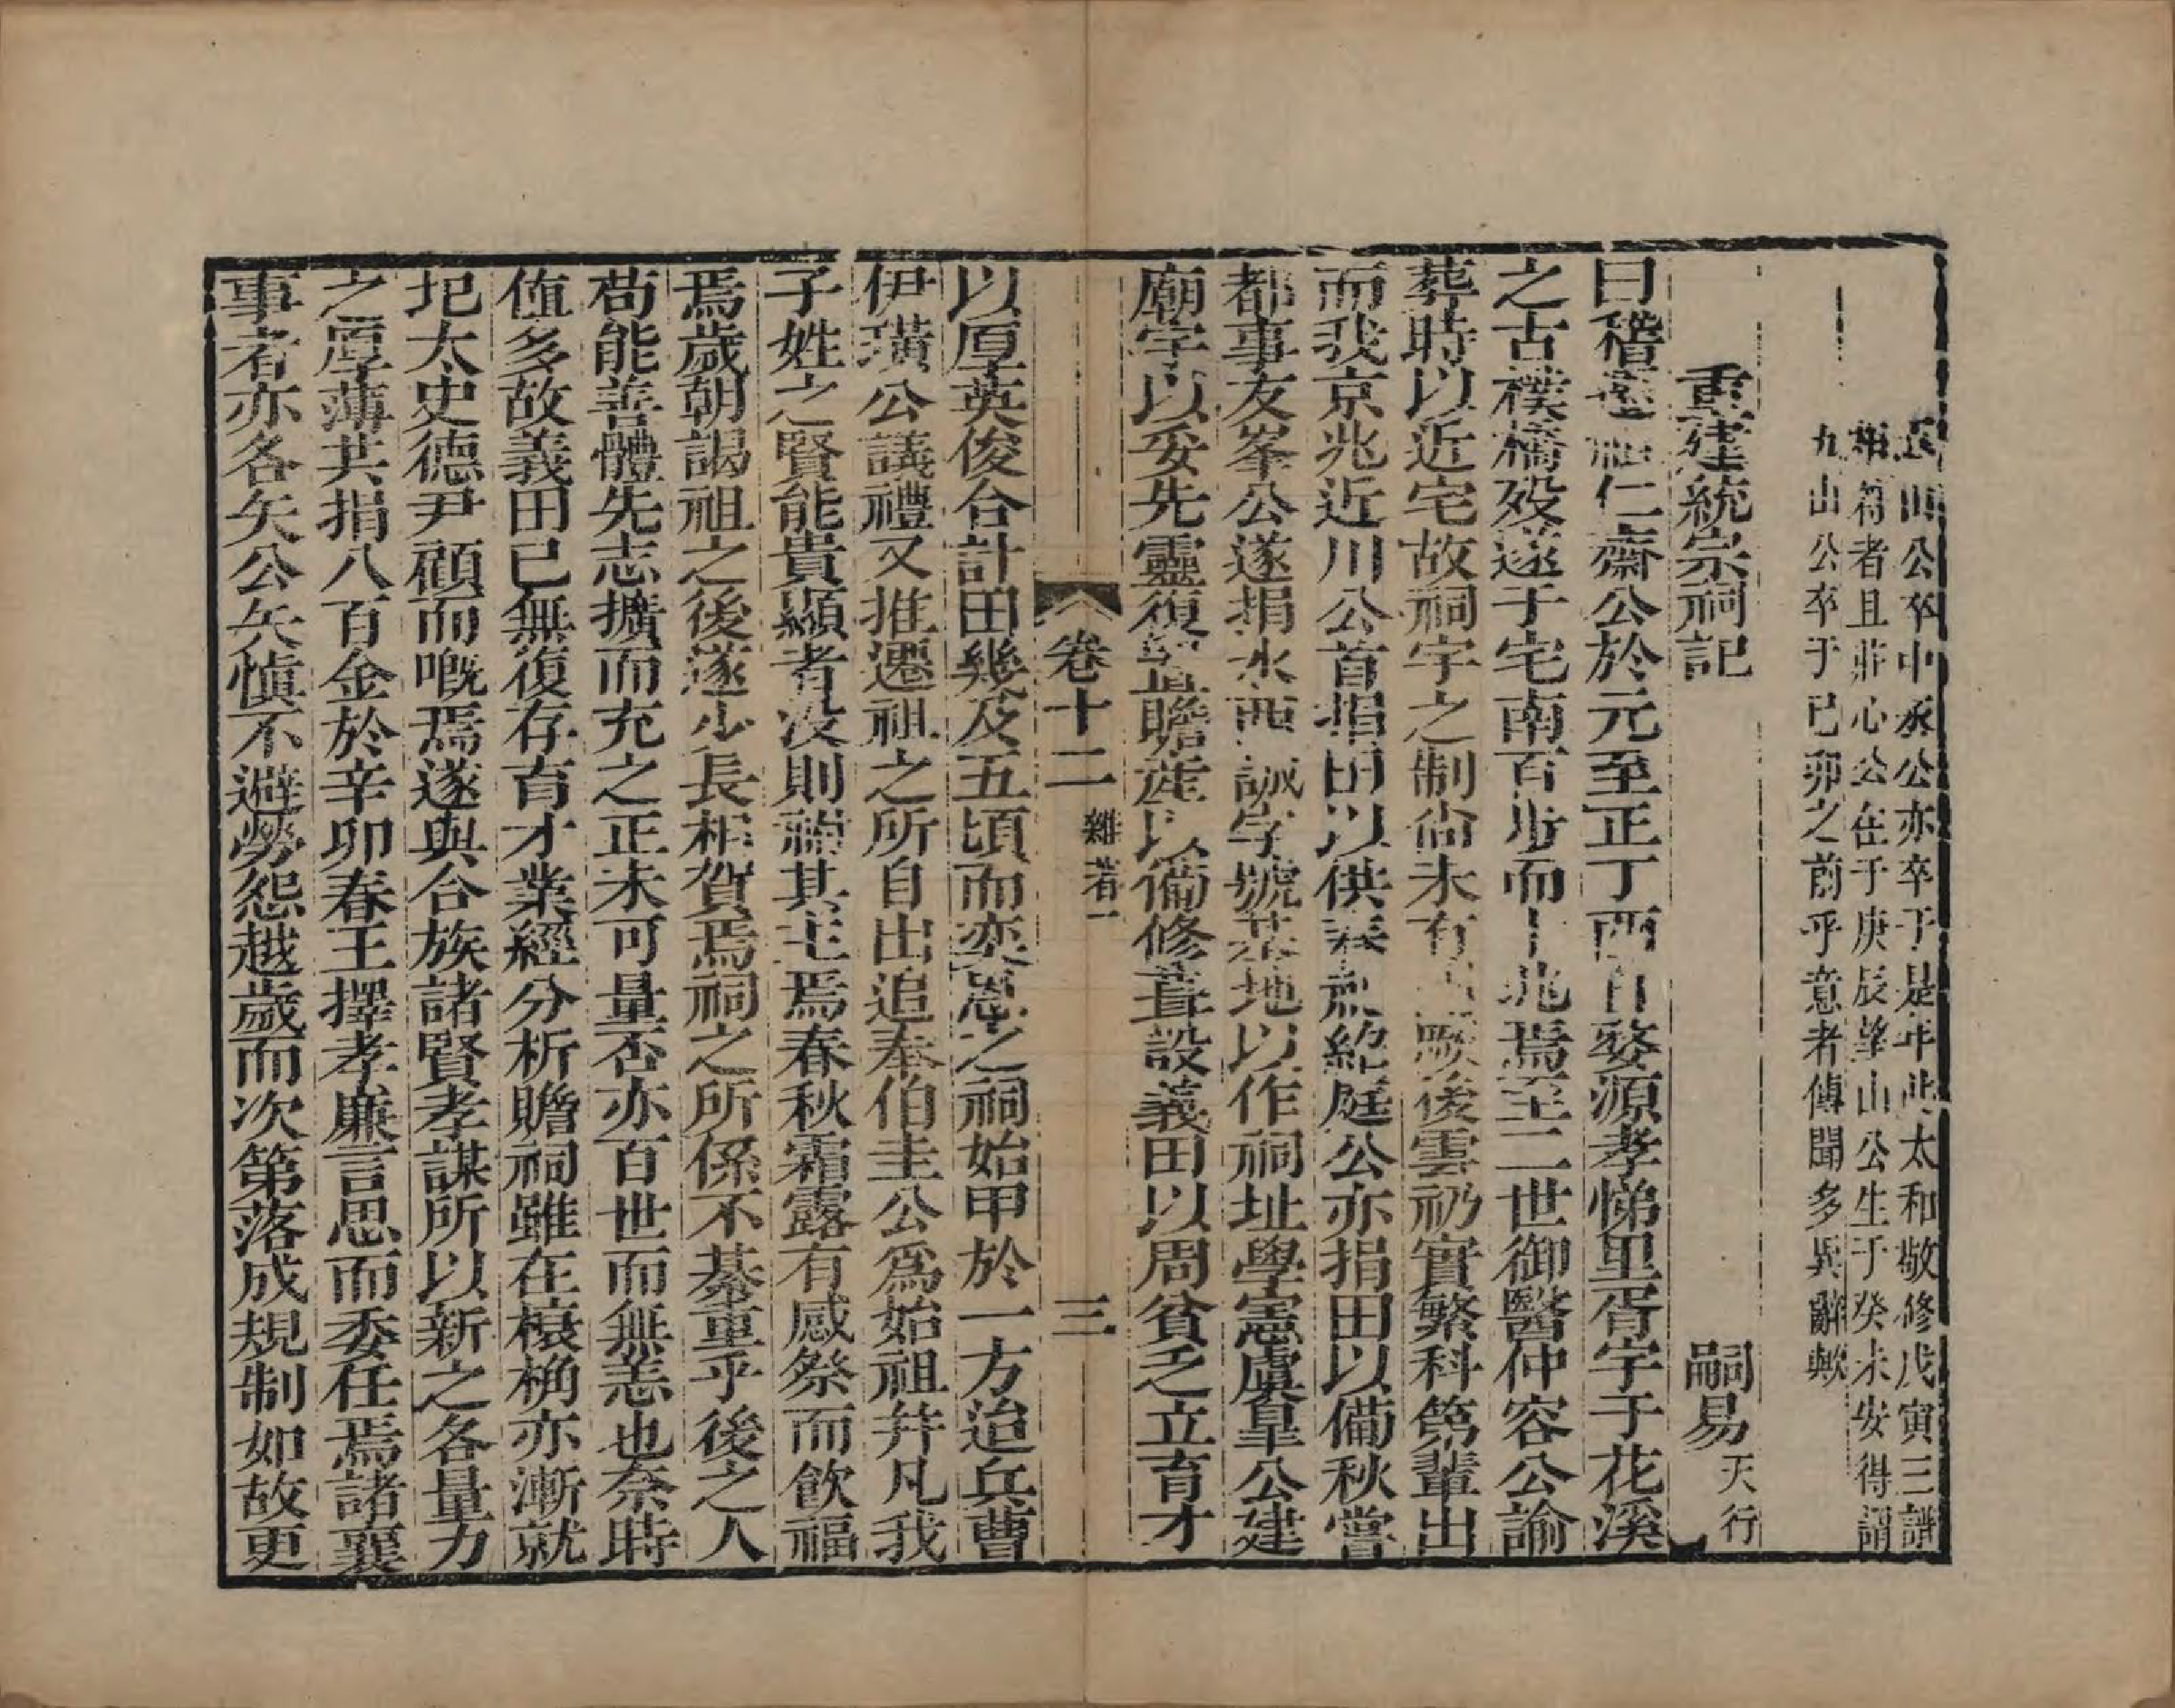 山公卒中丞公亦卒于是年此太和敬修戊寅三譜
符者且非心公在于庚辰峰山公生于癸未安得謂
九山公卒于已卯之前乎意者傳聞多異辭歟
重建統宗祠記
嗣易天行
曰稽遷祖仁齋公於元至正丁酉自婺源孝悌里胥宇于花溪
之古樸橋歿遂于宅南百步而兆焉至二世御醫仲容公諭
葬時以近宅故祠宇之制尙未有厥後雲礽實繁科第輩出
而我京兆近川公首捐田以供春祀紹庭公亦捐田以備秋嘗
都事友峯公遂捐水西誠字號基地以作祠址學憲虞臯公建
廟宇以妥先靈復置贍產以備修葺設義田以周貧乏立育才
卷十二 雜著一 三
以厚英俊合計田幾及五頃而奕恩之祠始甲於一方迨兵曹
伊璜公議禮又推遷祖之所自出追奉伯圭公爲始祖幷凡我
子姓之賢能貴顯者沒則祔其主焉春秋霜露有感祭而飮福
焉歲朝謁祖之後遂少長相賀焉祠之所係不綦重乎後之人
苟能善體先志擴而充之正未可量否亦百世而無恙也奈時
値多故義田已無復存育才業經分析贍祠雖在榱桷亦漸就
圮太史德尹顧而嘅焉遂與合族諸賢孝謀所以新之各量力
之厚薄共捐八百金於辛卯春王擇孝廉言思而委任焉諸襄
事者亦各矢公矢愼不避勞怨越歲而次第落成規制如故更